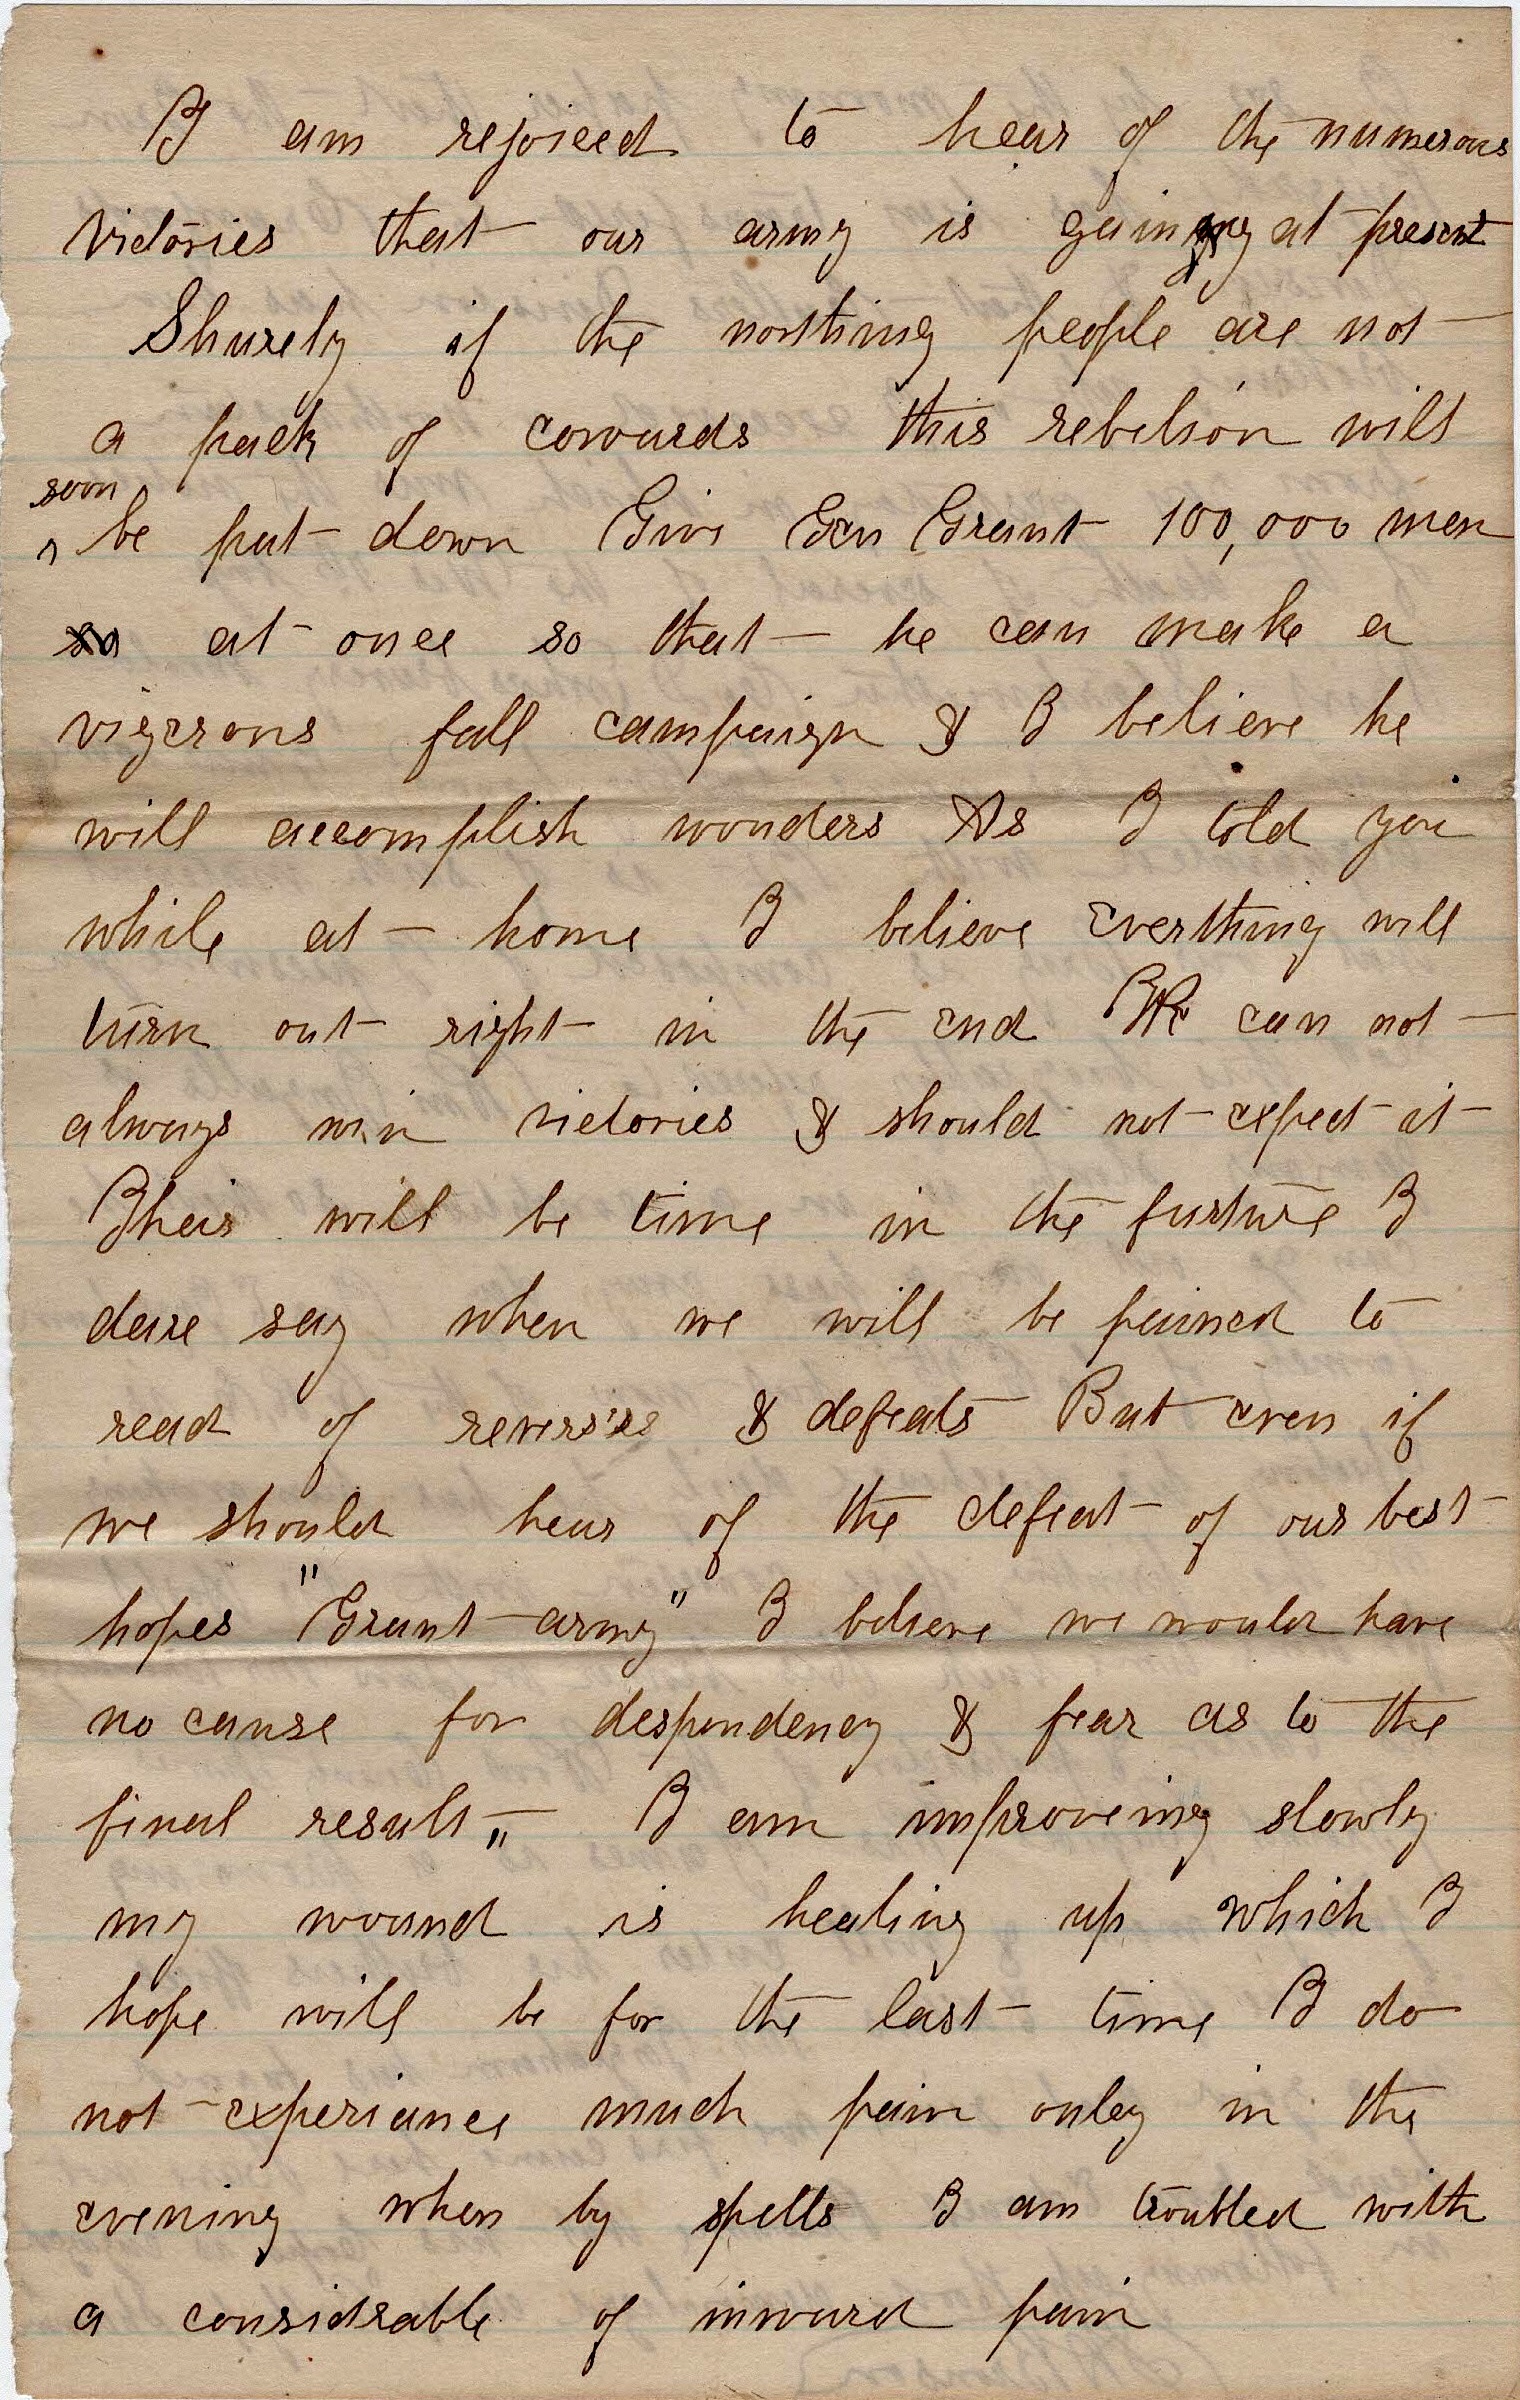 I am rejoiced to hear of the numerous
victories that our army is gaining at present
Shurely if the northing people are not
a pack of cowards this rebelion will
soon
^ be put down Give Gen Grant 100,000 men
so at once so that he can make a
vigerous fall campaign & I believe he
will accomplish wonders As I told you
while at home I believe everthing will
turn out right in the end We can not
always win victories & should not expect it
Their will be time in the furture I
dare say when we will be pained to
read of reverses & defeats But even if
we should hear of the defeat of our best
hopes "Grant army" I believe we would have
no cause for despondency & fear as to the
final result " I am improveing slowly
my wound is healing up which I
hope will be for the last time I do
not experiance much pain onley in the
evening when by spells I am troubled with
a considrable of inward pain